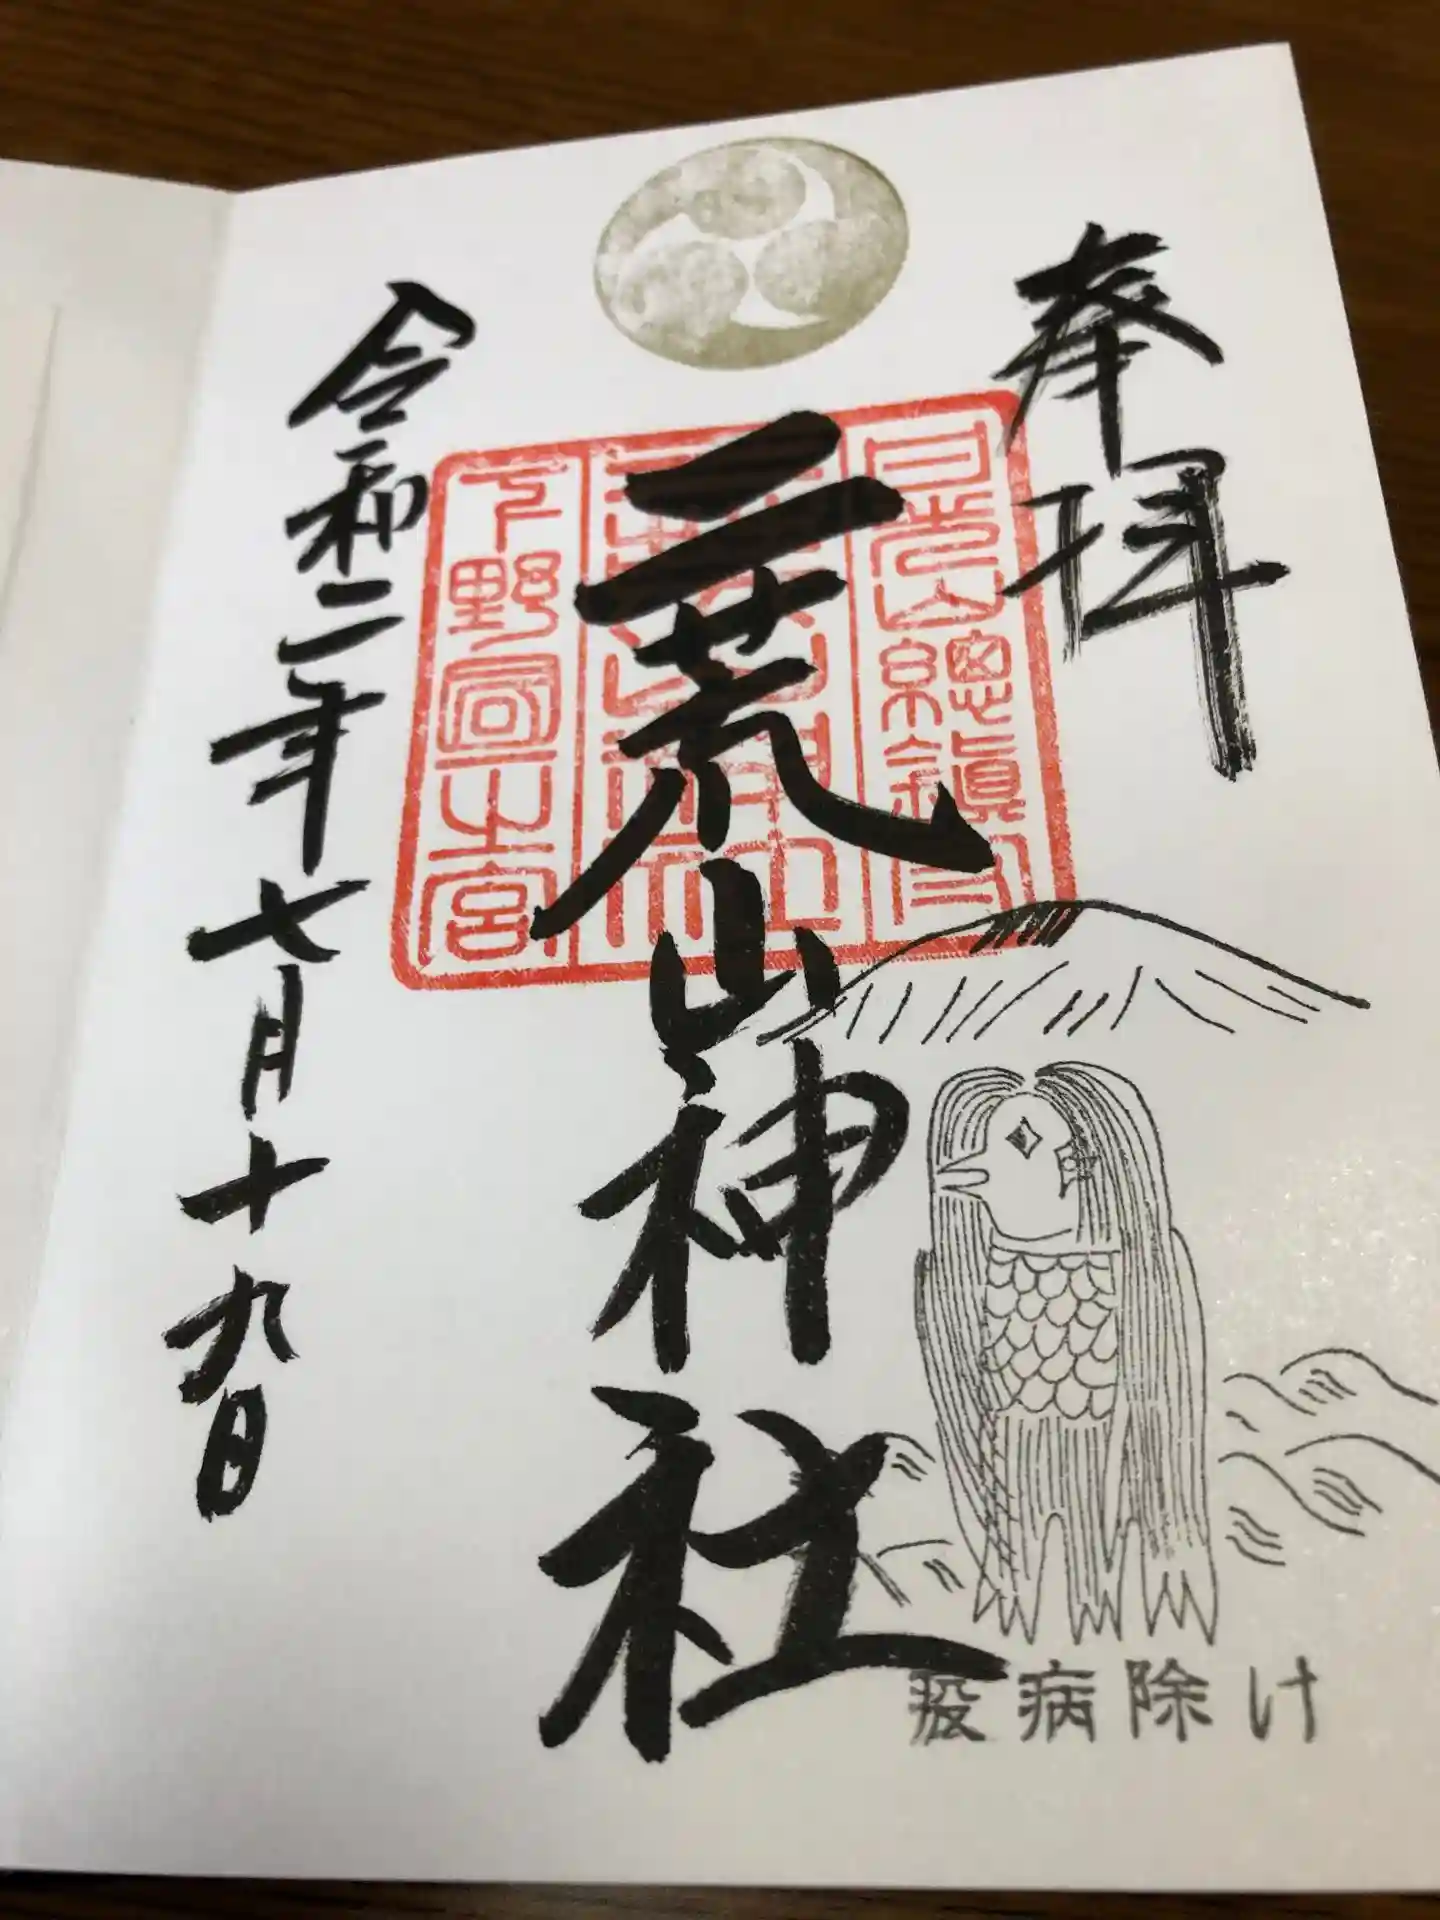 奉拝
日光山総鎮守
二荒山神社
下野国一之宮
令和二年七月十九日
疫病除け